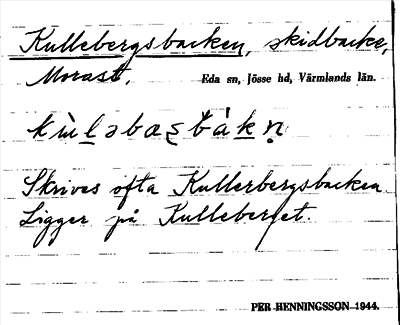 Kullebergsbacken, skidbacke,
Morast. Eda sn, Jösse hd, Värmlands län.
Skrives ofta Kullerbergsbacken
Ligger på Kulleberget.
PER HENNINGSSON 1944.